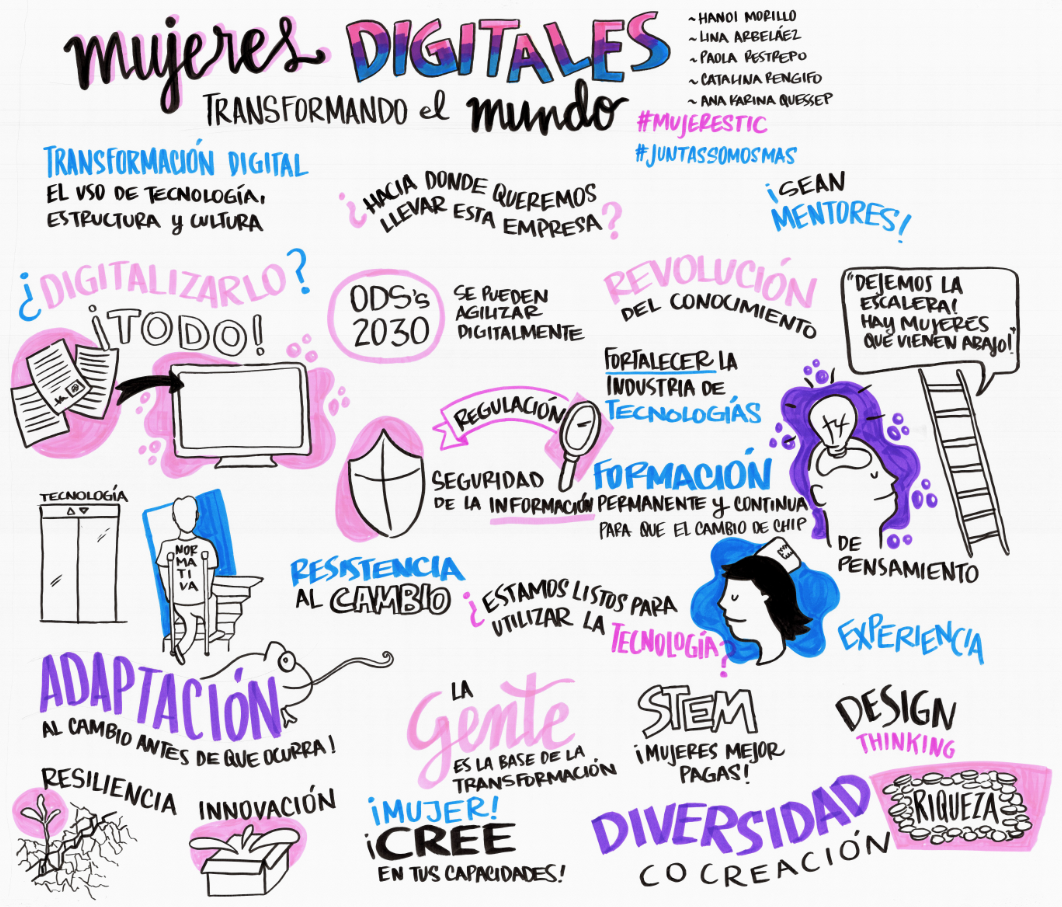 mujeres DIGITALES
TRANSFORMANDO el mundo
~ HANOI MORILLO
~ LINA ARBELÁEZ
~ PAOLA RESTREPO
~ CATALINA RENGIFO
~ ANA KARINA QUESSEP
#MUJERESTIC
#JUNTASSOMOSMAS
TRANSFORMACIÓN DIGITAL
EL USO DE TECNOLOGÍA,
ESTRUCTURA y CULTURA
¿HACIA DONDE QUEREMOS
LLEVAR ESTA EMPRESA?
¡SEAN
MENTORES!
¿DIGITALIZARLO?
¡TODO!
ODS's
2030
SE PUEDEN
AGILIZAR
DIGITALMENTE
REVOLUCIÓN
DEL CONOCIMIENTO
"DEJEMOS LA
ESCALERA!
HAY MUJERES
QUE VIENEN ABAJO!"
FORTALECER LA
INDUSTRIA DE
TECNOLOGIÁS
REGULACIÓN
SEGURIDAD
DE LA INFORMACIÓN
FORMACIÓN
PERMANENTE y CONTINUA
PARA QUE EL CAMBIO DE CHIP
DE
PENSAMIENTO
TECNOLOGÍA
NOR
MA
TI
VA
RESISTENCIA
AL CAMBIO
¿ESTAMOS LISTOS PARA
UTILIZAR LA
TECNOLOGÍA?
EXPERIENCIA
ADAPTACIÓN
AL CAMBIO ANTES DE QUE OCURRA!
LA
Gente
ES LA BASE DE LA
TRANSFORMACIÓN
STEM
¡MUJERES MEJOR
PAGAS!
DESIGN
THINKING
RESILIENCIA
INNOVACIÓN
¡MUJER!
¡CREE
EN TUS CAPACIDADES!
DIVERSIDAD
COCREACIÓN
RIQUEZA